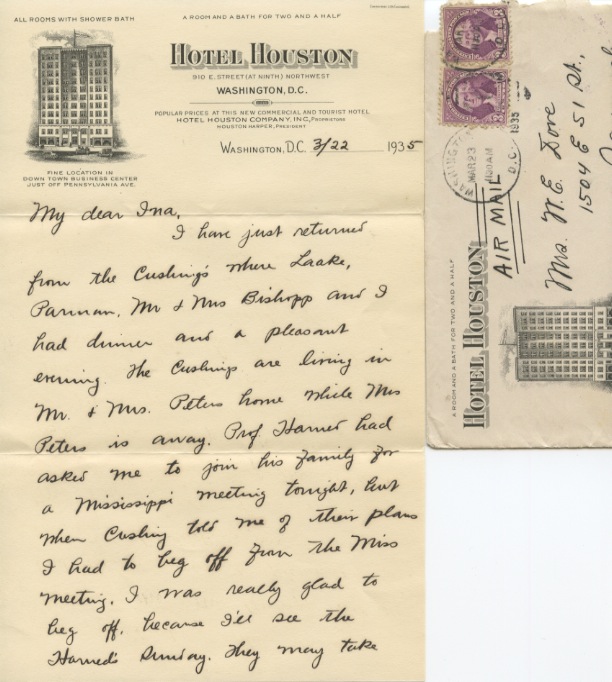 ALL ROOMS WITH SHOWER BATH
A ROOM AND A BATH FOR TWO AND A HALF
HOTEL HOUSTON
910 E. STREET (AT NINTH) NORTHWEST
WASHINGTON, D.C.
POPULAR PRICES AT THIS NEW COMMERCIAL AND TOURIST HOTEL
HOTEL HOUSTON COMPANY, INC, PROPRIETORS
HOUSTON HARPER, PRESIDENT
FINE LOCATION IN
DOWN TOWN BUSINESS CENTER
JUST OFF PENNSYLVANIA AVE.
WASHINGTON, D.C. 3/22 1935
My dear Ina,
I have just returned
from the Cushing's where Laake,
Parman, Mr & Mrs Bishopp and I
had dinner and a pleasant
evening. The Cushings are living in
Mr. & Mrs. Peters home while Mrs
Peters is away. Prof Harned had
asked me to join his family for
a Mississippi meeting tonight, but
when Cushing told me of their plans
I had to beg off from the Miss
meeting. I was really glad to
beg off, because I'll see the
Harned's Sunday. They may take
WASHINGTON
MAR 23
AM
D.C.
1935
AIR MAIL
Mrs. W. E. Dove
1504 E 51 St.,
A ROOM AND A BATH FOR TWO AND A HALF
HOTEL HOUSTON